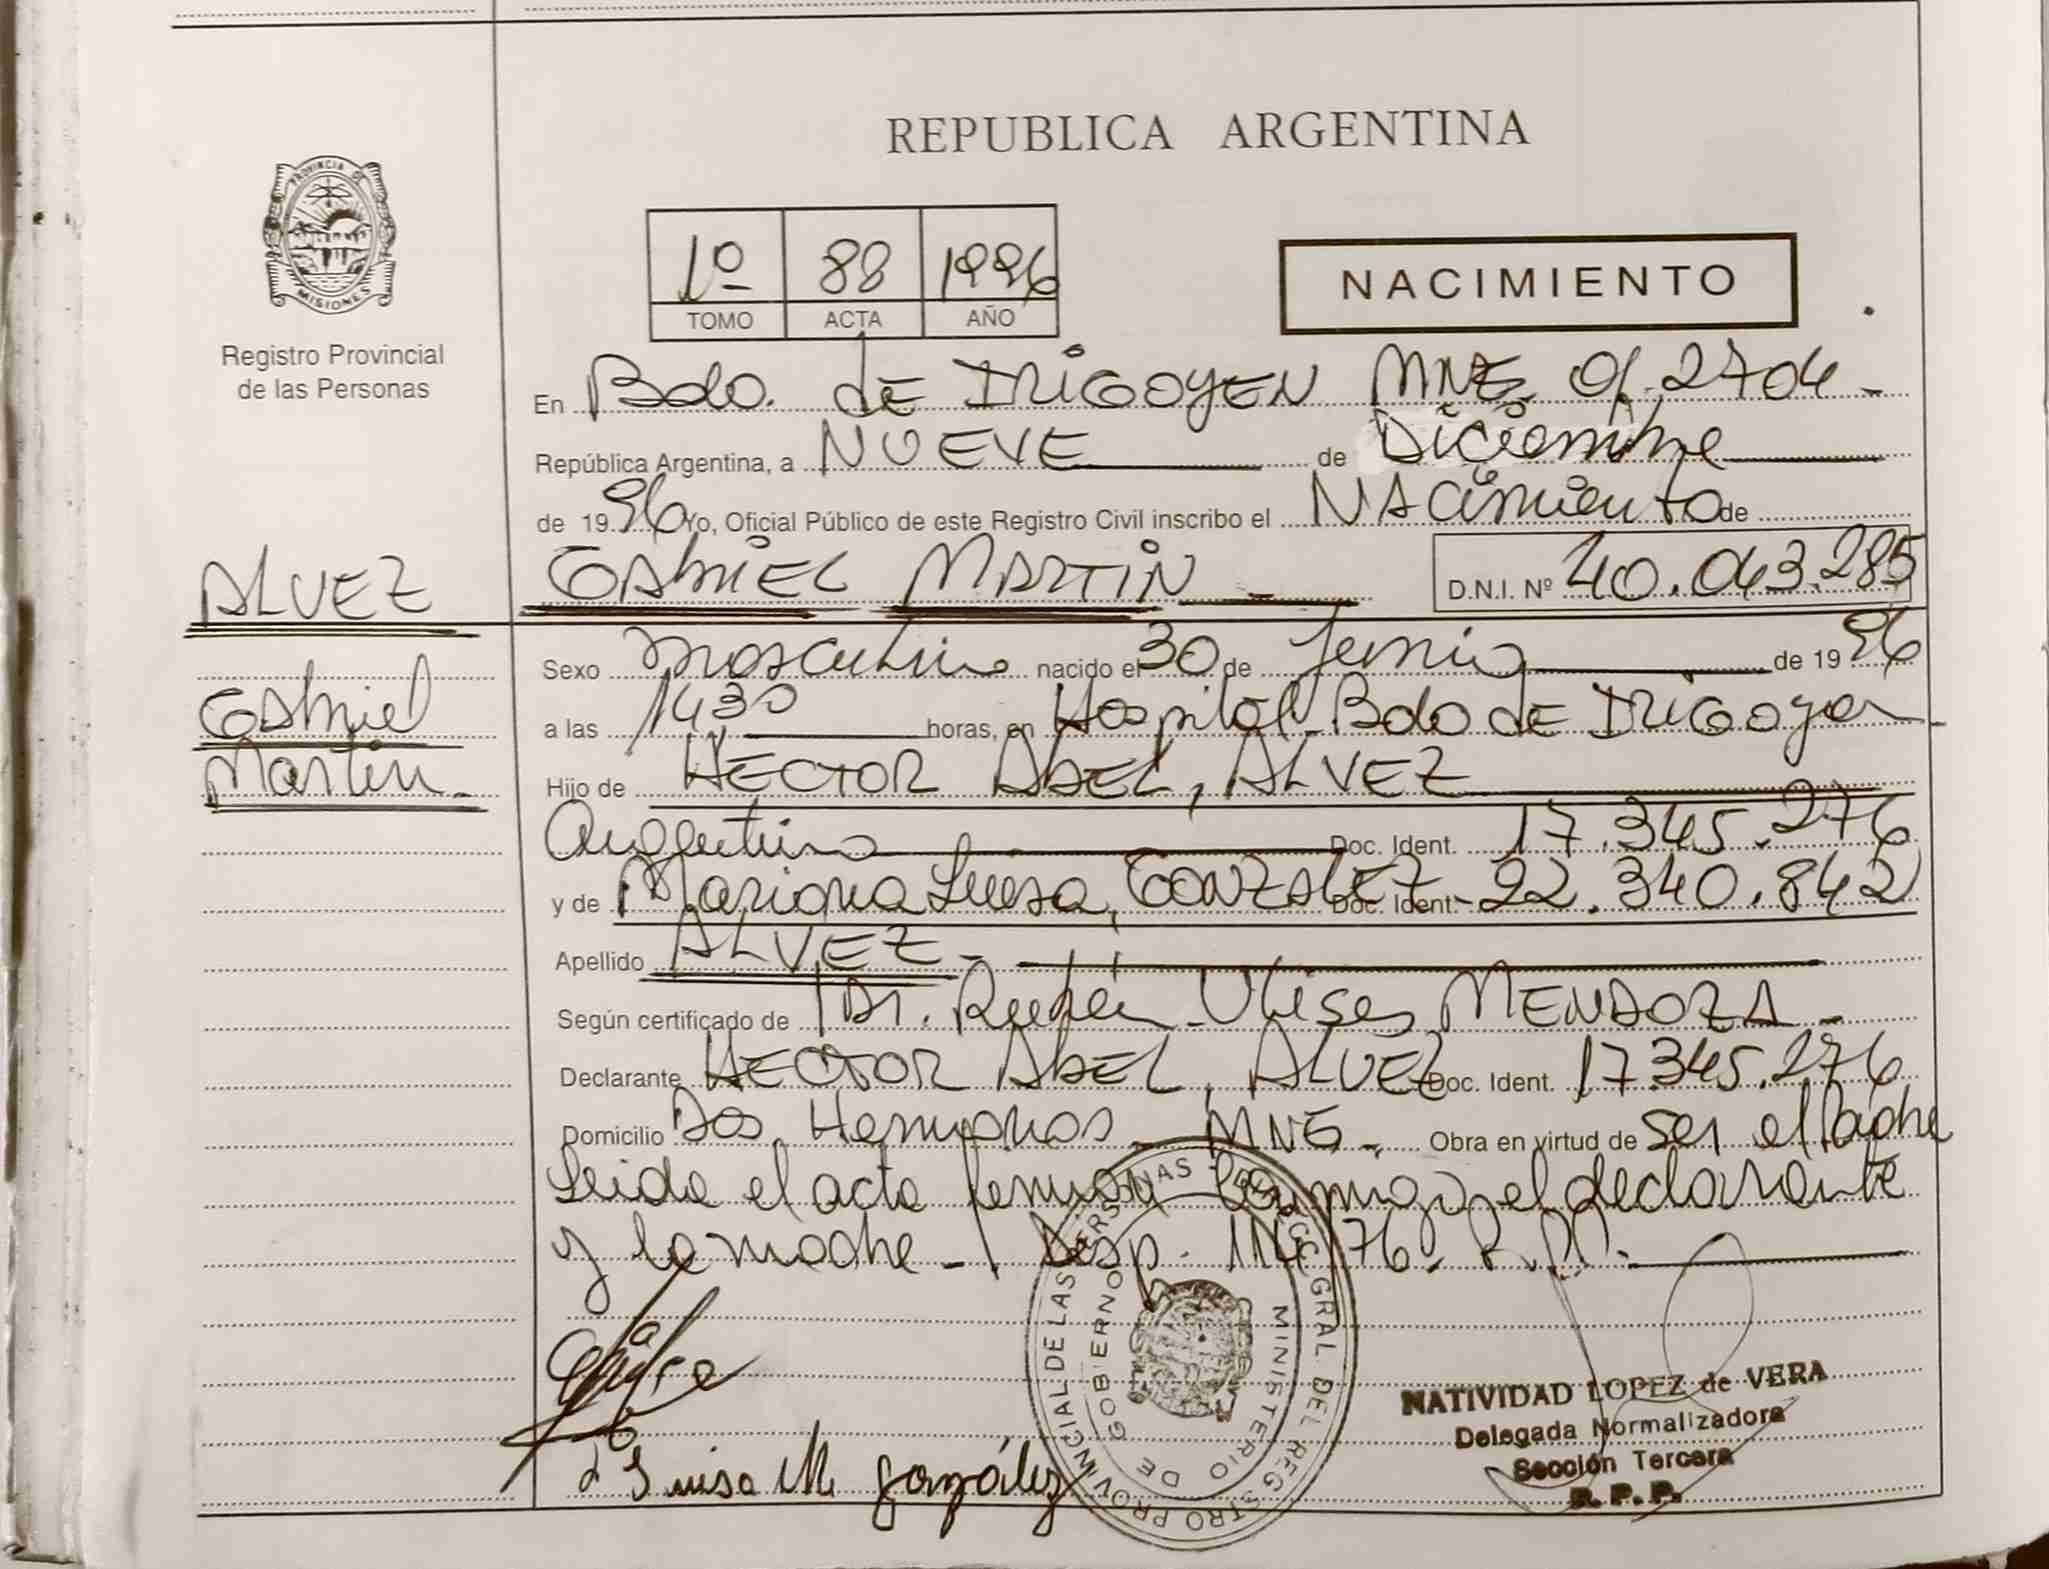 PROVINCIA DE
MISIONES
Registro Provincial
de las Personas
REPUBLICA ARGENTINA
1º 88 1996
TOMO ACTA AÑO
NACIMIENTO
En Bdo. de IRIGOYEN MNES Of. 2704 -
República Argentina, a NUEVE de Diciembre
de 1996 Yo, Oficial Público de este Registro Civil inscribo el NAcimiento de
ALVEZ
GAbriEL MARTIN - D.N.I. Nº 40.043.285
Gabriel
Martin -
Sexo masculino nacido el 30 de Junio de 1996
a las 1430 horas, en Hospital Bdo de IRIGOyen -
Hijo de HECTOR AbEL, ALVEZ
Argentino Doc. Ident. 17.345.276
y de Mariana Luisa, GONZALEZ Doc. Ident. - 22.340.842
Apellido ALVEZ -
Según certificado de Dr. Rubén Ulises MENDOZA -
Declarante HECTOR AbEL, ALVEZ Doc. Ident. 17.345.276
Domicilio Dos Hermanas - MNES -. Obra en virtud de ser el padre
Leida el acta firman conmigo el declarante
y la madre - Disp. 114/76. R.P.P.
Luisa M González
REGISTRO PROVINCIAL DE LAS PERSONAS - DIRECC. GRAL. DEL
MINISTERIO DE GOBIERNO
NATIVIDAD LOPEZ de VERA
Delegada Normalizadora
Sección Tercera
R. P. P.